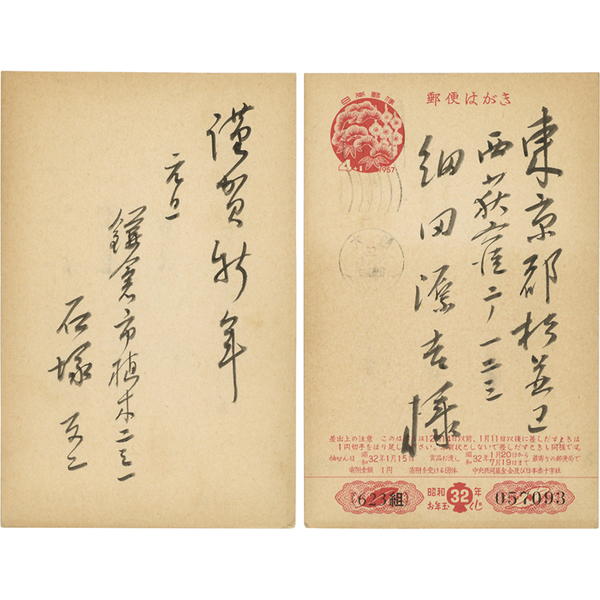 謹賀新年
元旦
鎌倉市植木二三一
石塚友二
日本郵便
4+1
1957
郵便はがき
東京都杉並区
西荻窪二ノ一二三
細田源吉様
差出上の注意 このはがきは12月14日以前、1月11日以後に差しだすときは
1円切手をはり足してください。年賀状としないで差しだすときも同様です。
抽せん日 昭和32年1月15日 賞品お渡し 昭和32年1月20日から7月19日まで 最寄りの郵便局で
寄附金額 1円 寄附を受ける団体 中央共同募金会及び日本赤十字社
623組
昭和32年
お年玉
057093